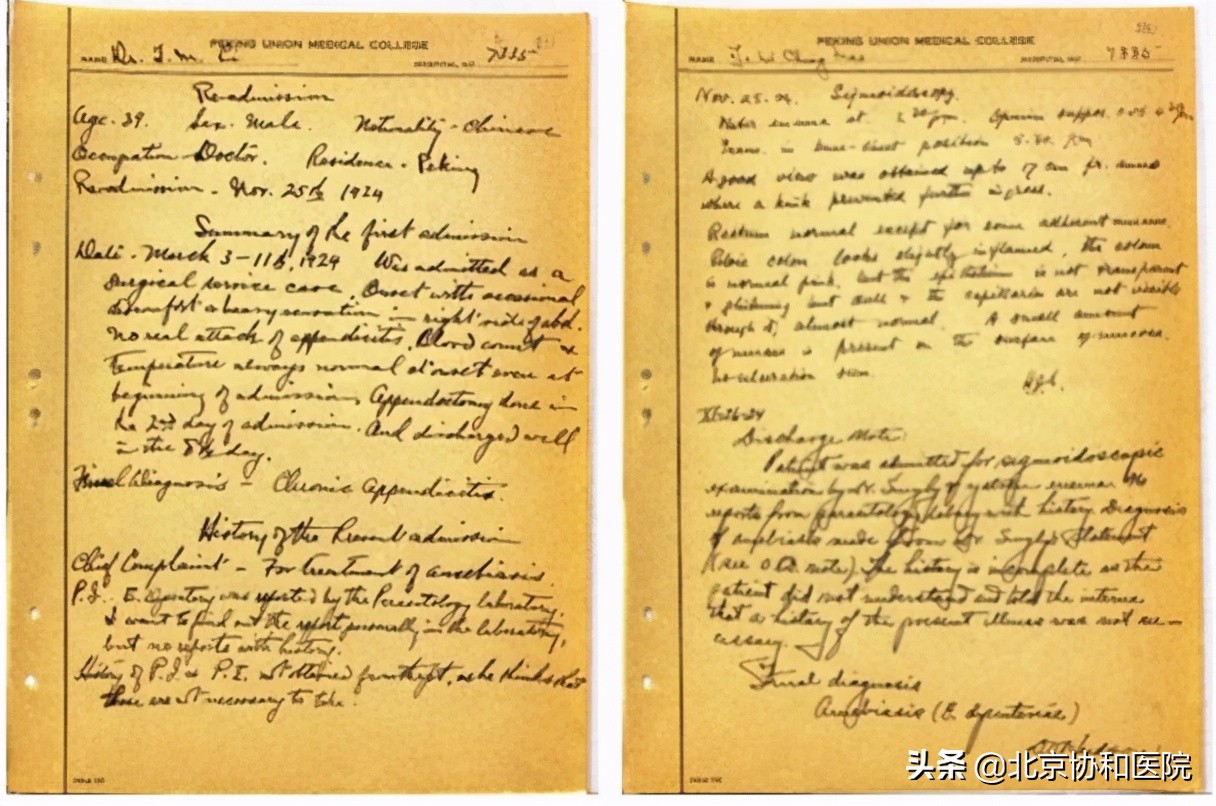 PEKING UNION MEDICAL COLLEGE
NAME Dr. T. M. Li HOSPITAL NO. 7335
Re-admission
Age. 39. Sex. Male. Nationality - Chinese
Occupation - Doctor. Residence - Peking
Re-admission - Nov. 25th 1924
Summary of the first admission
Date - March 3 - 11th, 1924 Was admitted as a
surgical service case. Onset with occasional
discomfort & heavy sensation in right side of abd.
No real attack of appendicitis. Blood count &
temperature always normal at onset even at
beginning of admission. Appendectomy done in
the 2nd day of admission. And discharged well
in the 8th day.
Final Diagnosis - Chronic Appendicitis.
History of the Present admission
Chief Complaint - For treatment of amebiasis.
P.I. E. dysentery was reported by the Parasitology laboratory.
I want to find out the report personally in the laboratory,
but no reports with history.
History of P.I. & P.I. not obtained from the pt. as he thinks that
those are not necessary to take.
PEKING UNION MEDICAL COLLEGE
NAME HOSPITAL NO. 7335
Nov. 25. 24. Sigmoidoscopy.
Water enema at Opium suppos.
Exam. in knee-chest position
A good view was obtained up to 17 cm fr. anus
where a kink prevented further ingress.
Rectum normal except for some adherent mucus.
Pelvic colon looks slightly inflamed, the colour
is normal pink, but the epithelium is not transparent
& glistening but dull & the capillaries are not visible
through it, almost normal. A small amount
of mucus is present on the surface of mucosa.
No ulceration seen.
XI-26-24
Discharge Note:
Patient was admitted for sigmoidoscopic
examination by Dr. enema. No
reports from parasitology laboratory with history. Diagnosis
of amebiasis made from Dr. statement
(see O.D. note). The history is incomplete as the
patient did not understand and told the interne
that a history of the present illness was not ne-
cessary.
Final diagnosis
Amebiasis (E. dysenteriae)
头条 @北京协和医院